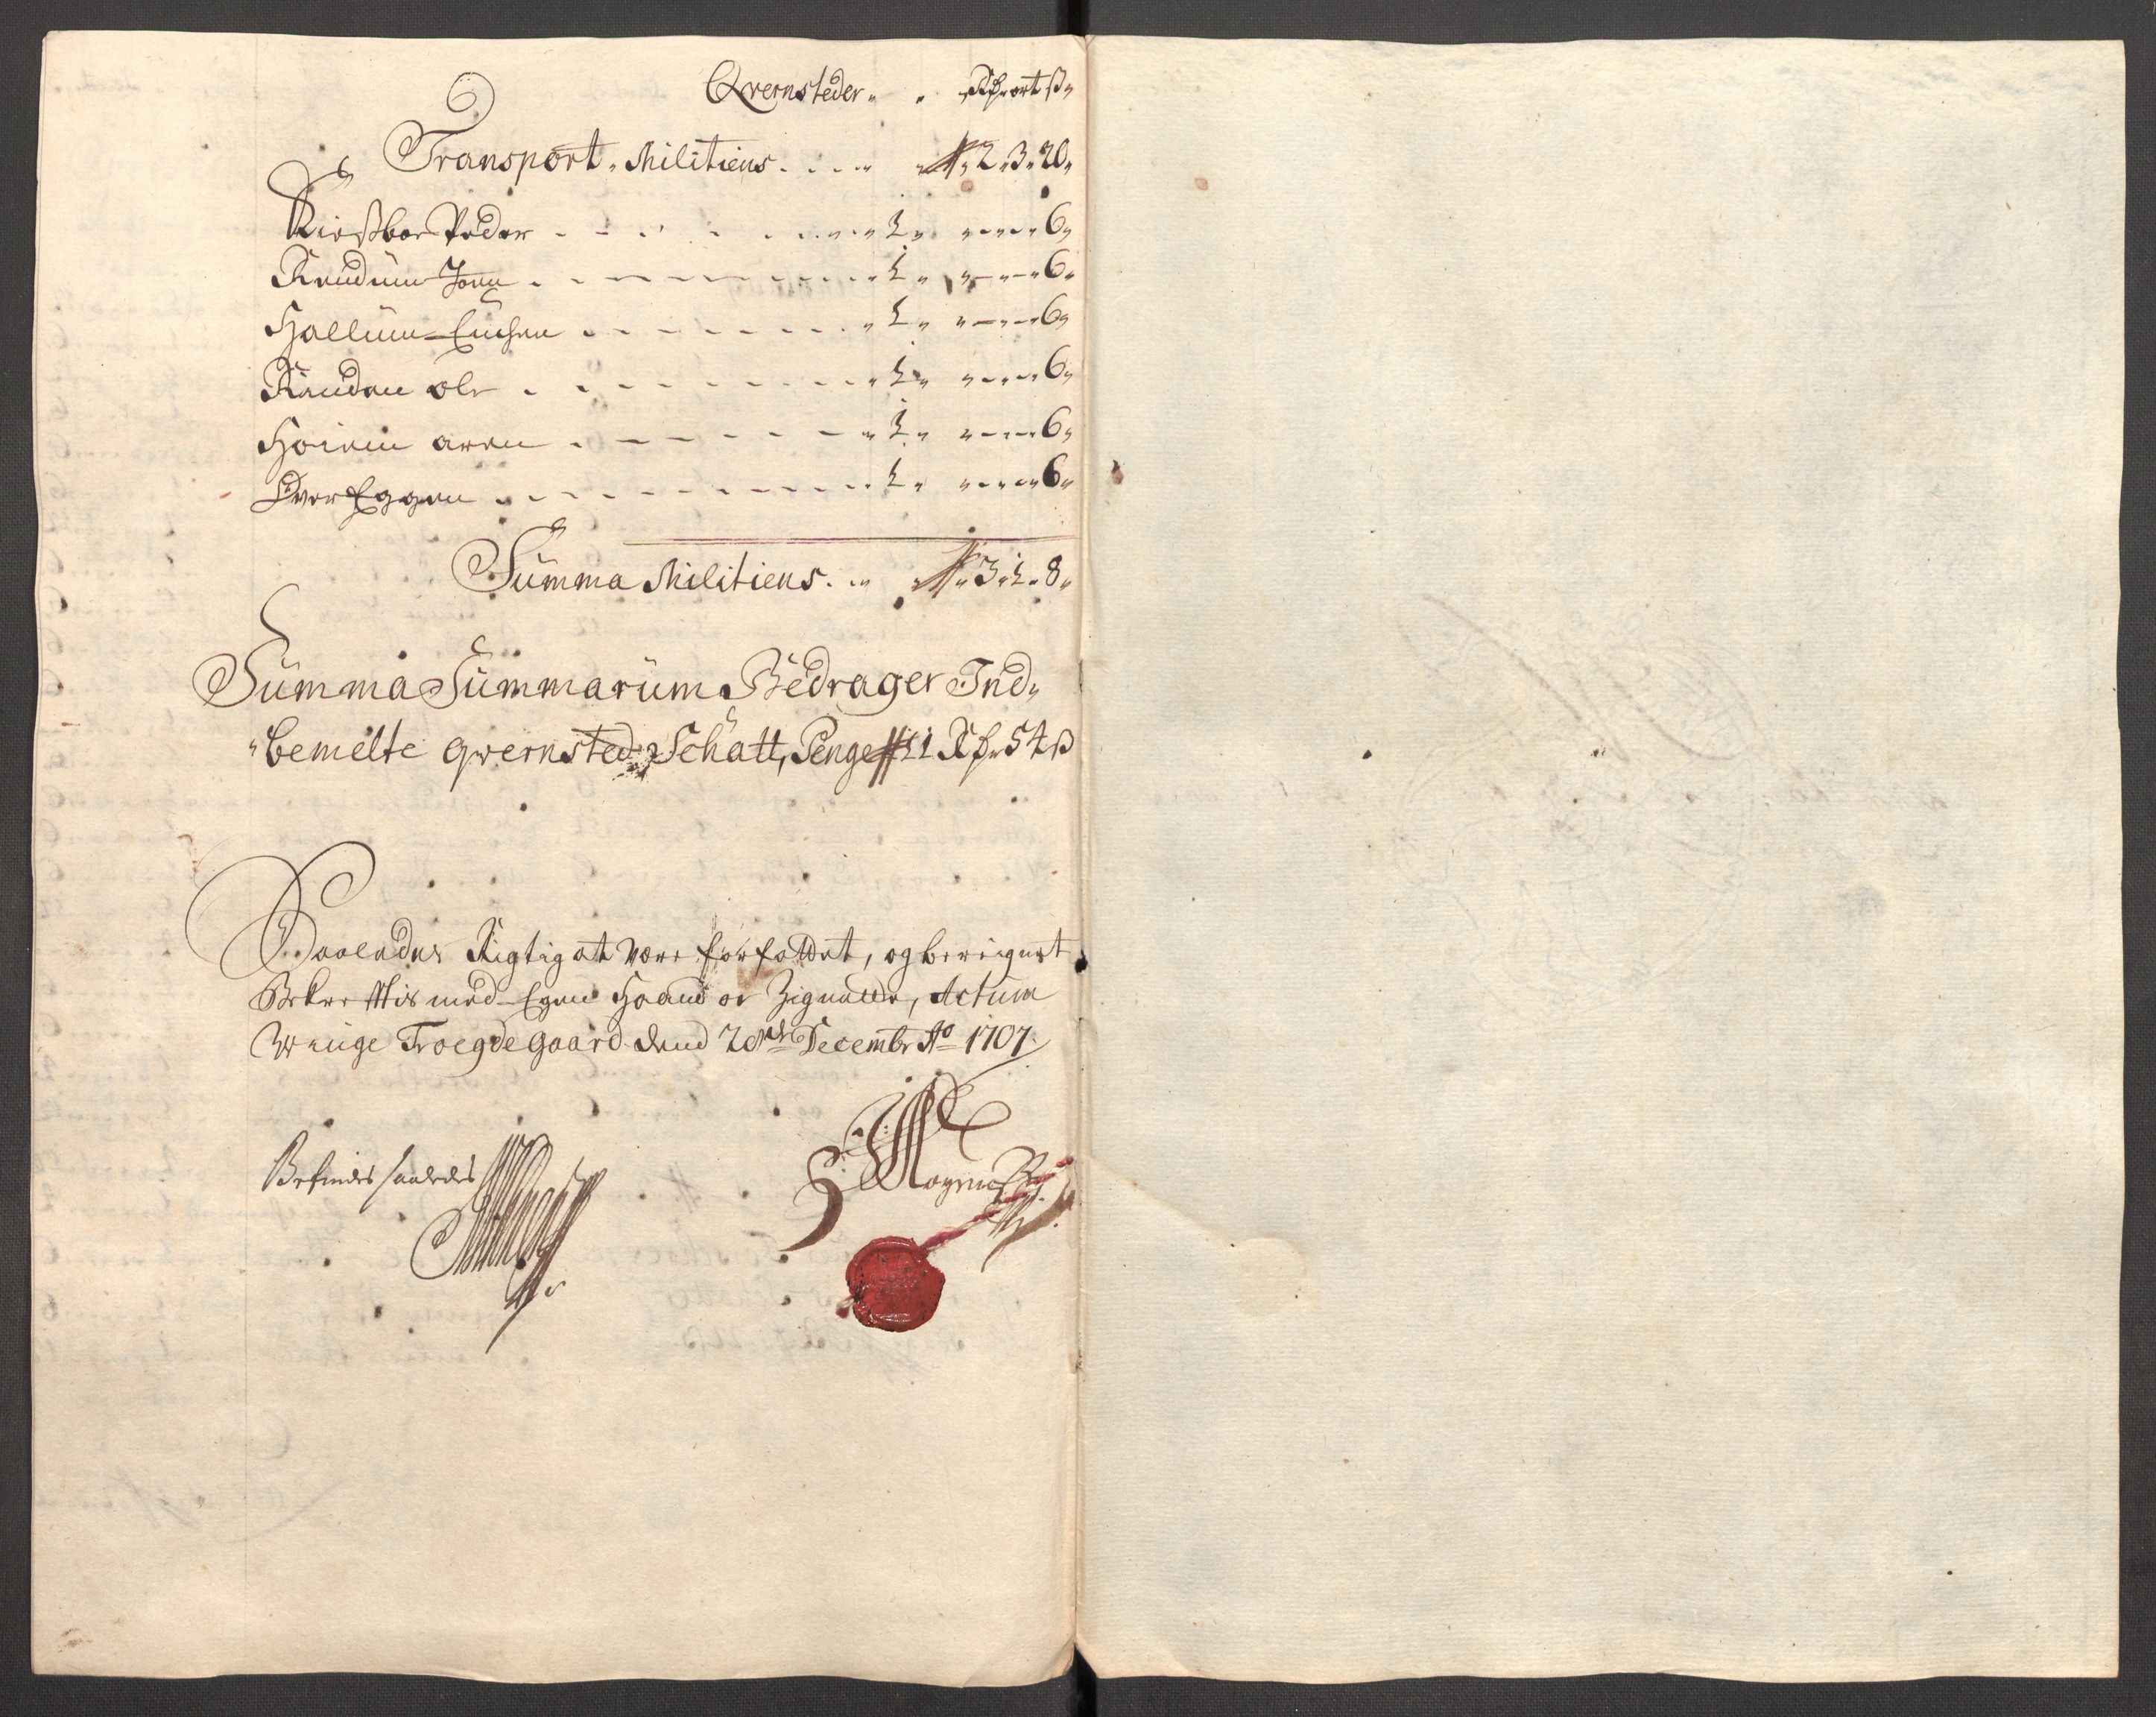 Qvernsteder „ „ Rdr ort ß„
Transport „ Militiens . . . . „ 2„3„20„
Kioßboe Peder - - - - „ 1„ „---„6„
Rendum Joen . - - - - „ 1„ „---„6„
Hallum Enchen . - - - - „ 1„ „---„6„
Randen ole . - - - - „ 1„ „---„6„
Hoiem aren . - - - - „ 1„ „---„6„
Over Eggen . - - - - „ 1„ „---„6„
Summa Militiens . „ „3„1„8„
Summa Summarum Bedrager Ind„
„bemelte qvernsted Schatt, Penge 11 Rdr 54 ß
Saaledes Rigtig at være forfattet, og beregnet
Bekreftis med Egen Haand oc Zignette, Actum
Wenge Troegdegaard dend Decembr Ao 1707
Befindes saaledes